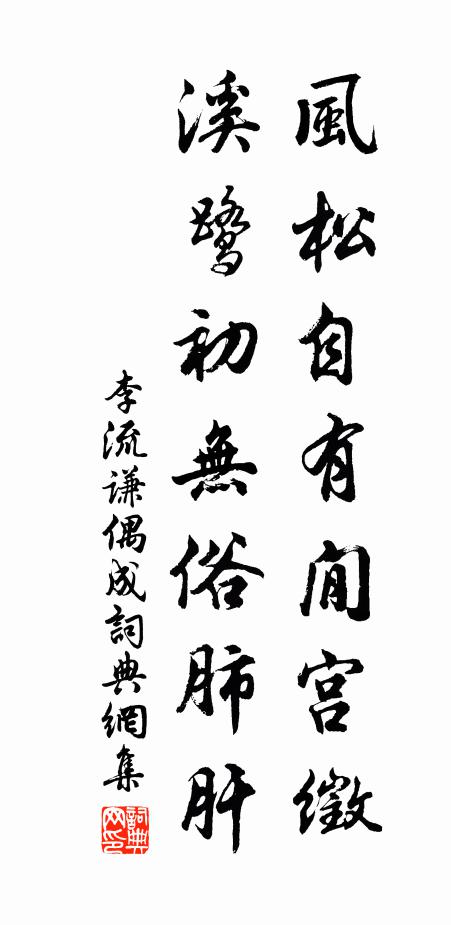 風松自有閒宮徵
溪鷺初無俗肺肝
李流谦偶成詞典網集
詞典网印